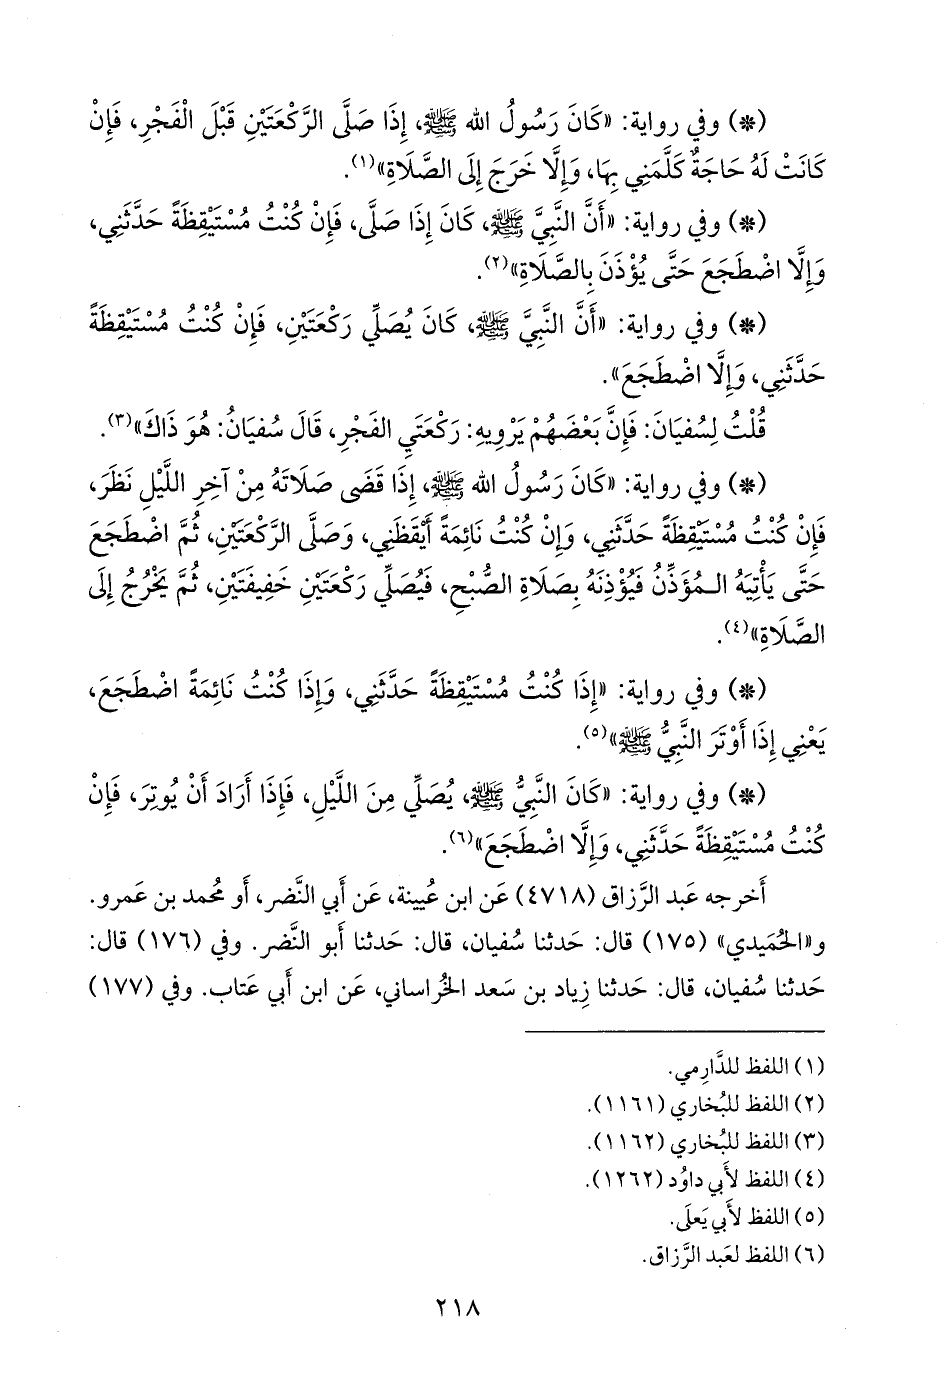 (*) وفي رواية: «كَانَ رَسُولُ الله ﷺ، إِذَا صَلَّى الرَّكْعَتَيْنِ قَبْلَ الْفَجْرِ، فَإِنْ
كَانَتْ لَهُ حَاجَةٌ كَلَّمَنِي بِهَا، وَإِلَّا خَرَجَ إِلَى الصَّلَاةِ»(١).
(*) وفي رواية: «أَنَّ النَّبِيَّ ﷺ، كَانَ إِذَا صَلَّى، فَإِنْ كُنْتُ مُسْتَيْقِظَةً حَدَّثَنِي،
وَإِلَّا اضْطَجَعَ حَتَّى يُؤْذَنَ بِالصَّلَاةِ»(٢).
(*) وفي رواية: «أَنَّ النَّبِيَّ ﷺ، كَانَ يُصَلِّي رَكْعَتَيْنِ، فَإِنْ كُنْتُ مُسْتَيْقِظَةً
حَدَّثَنِي، وَإِلَّا اضْطَجَعَ».
قُلْتُ لِسُفيَانَ: فَإِنَّ بَعْضَهُمْ يَرْوِيهِ: رَكْعَتَيِ الفَجْرِ، قَالَ سُفيَانُ: هُوَ ذَاكَ»(٣).
(*) وفي رواية: «كَانَ رَسُولُ الله ﷺ، إِذَا قَضَى صَلَاتَهُ مِنْ آخِرِ اللَّيْلِ نَظَرَ،
فَإِنْ كُنْتُ مُسْتَيْقِظَةً حَدَّثَنِي، وَإِنْ كُنْتُ نَائِمَةً أَيْقَظَنِي، وَصَلَّى الرَّكْعَتَيْنِ، ثُمَّ اضْطَجَعَ
حَتَّى يَأْتِيَهُ الـمُؤَذِّنُ فَيُؤْذِنَهُ بِصَلَاةِ الصُّبْحِ، فَيُصَلِّي رَكْعَتَيْنِ خَفِيفَتَيْنِ، ثُمَّ يَخْرُجُ إِلَى
الصَّلَاةِ»(٤).
(*) وفي رواية: «إِذَا كُنْتُ مُسْتَيْقِظَةً حَدَّثَنِي، وَإِذَا كُنْتُ نَائِمَةً اضْطَجَعَ،
يَعْنِي إِذَا أَوْتَرَ النَّبِيُّ ﷺ»(٥).
(*) وفي رواية: «كَانَ النَّبِيُّ ﷺ، يُصَلِّي مِنَ اللَّيْلِ، فَإِذَا أَرَادَ أَنْ يُوتِرَ، فَإِنْ
كُنْتُ مُسْتَيْقِظَةً حَدَّثَنِي، وَإِلَّا اضْطَجَعَ»(٦).
أَخرجه عَبد الرَّزاق (٤٧١٨) عَن ابن عُيينة، عَن أَبي النَّضر، أَو مُحمد بن عَمرو.
و«الحُمَيدي» (١٧٥) قال: حَدثنا سُفيان، قال: حَدثنا أَبو النَّضر. وفي (١٧٦) قال:
حَدثنا سُفيان، قال: حَدثنا زِياد بن سَعد الخُراساني، عَن ابن أَبي عَتاب. وفي (١٧٧)
(١) اللفظ للدَّارِمي.
(٢) اللفظ للبُخاري (١١٦١).
(٣) اللفظ للبُخاري (١١٦٢).
(٤) اللفظ لأَبي داوُد (١٢٦٢).
(٥) اللفظ لأَبي يَعلَى.
(٦) اللفظ لعَبد الرَّزاق.
٢١٨